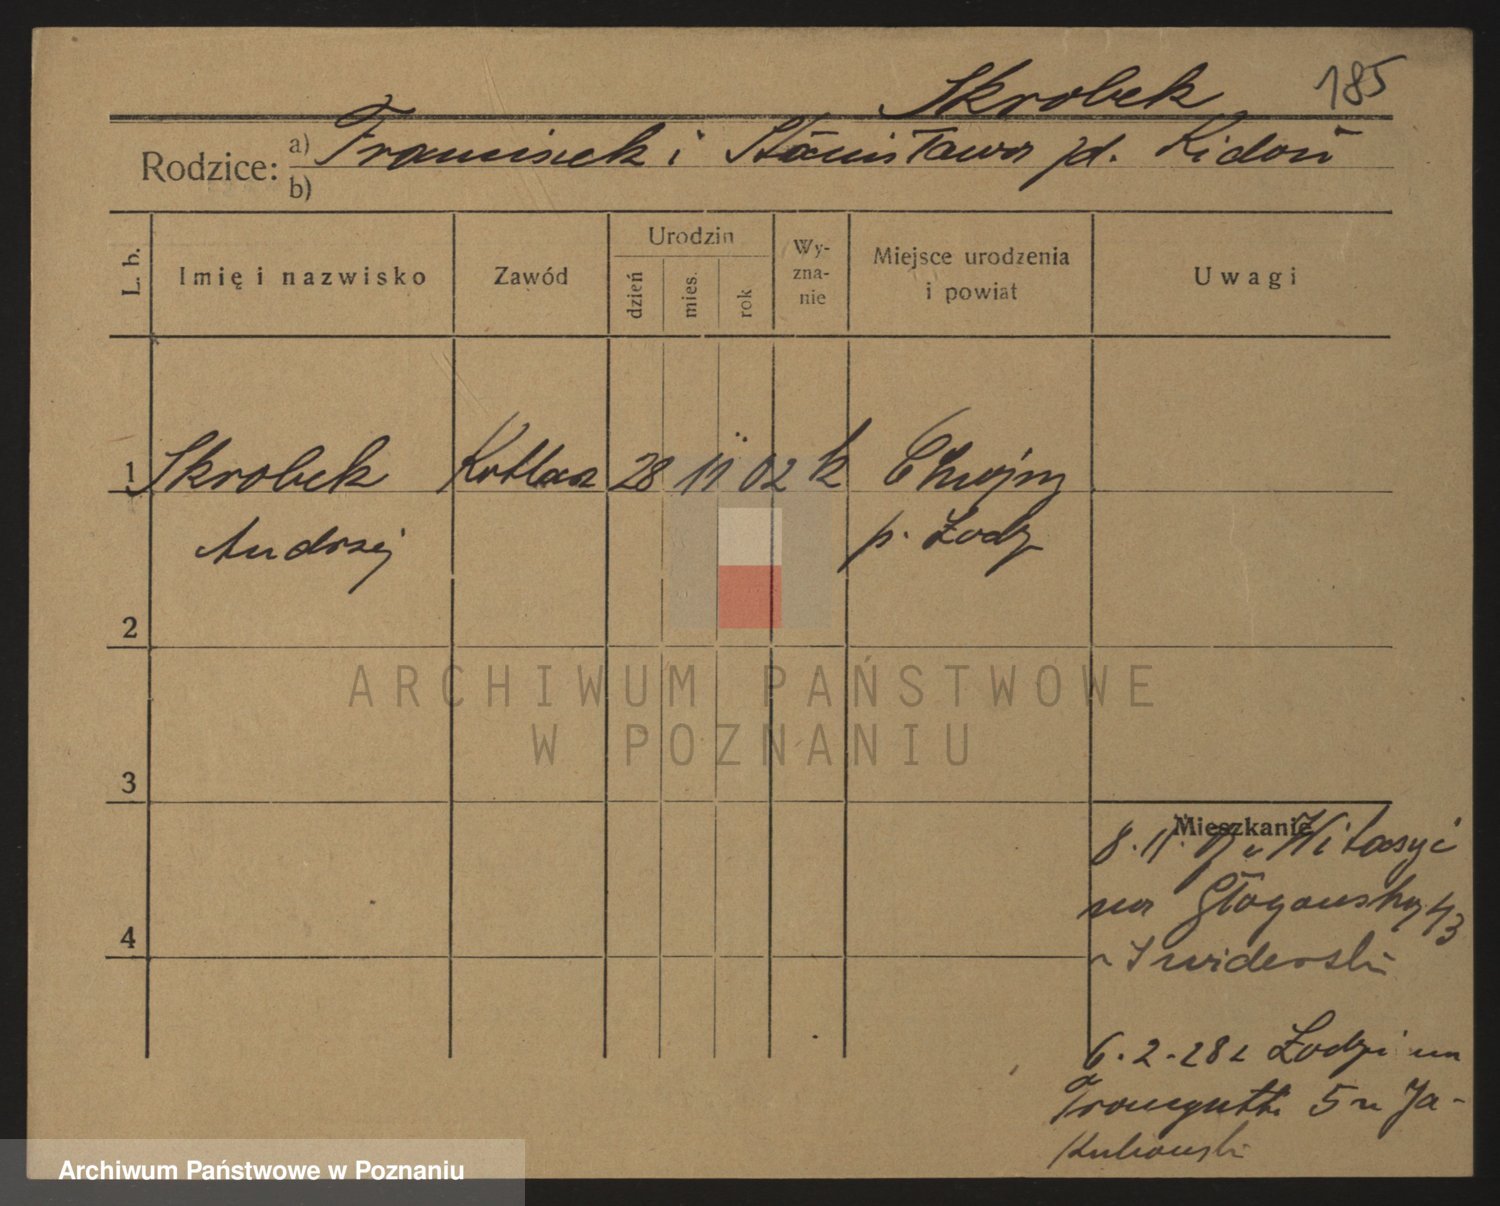 Skrobek 185
Rodzice: a) Franciszek i Stanisława zd. Kidoń
b)
L. b.
Imię i nazwisko
Zawód
Urodzin
dzień
mies.
rok
Wy-
zna-
nie
Miejsce urodzenia
i powiat
Uwagi
1 Skrobek Kotlarz 28 11 02 k Chojny
Andrzej p. Łodz
2
3
4
Mieszkanie
8. 11. Witaszyc
na Głogowską 43
Swiderski
6. 2. 28 z Łodzi na
Traugutta 5 u Ja-
kubowski
ARCHIWUM PAŃSTWOWE
W POZNANIU
Archiwum Państwowe w Poznaniu